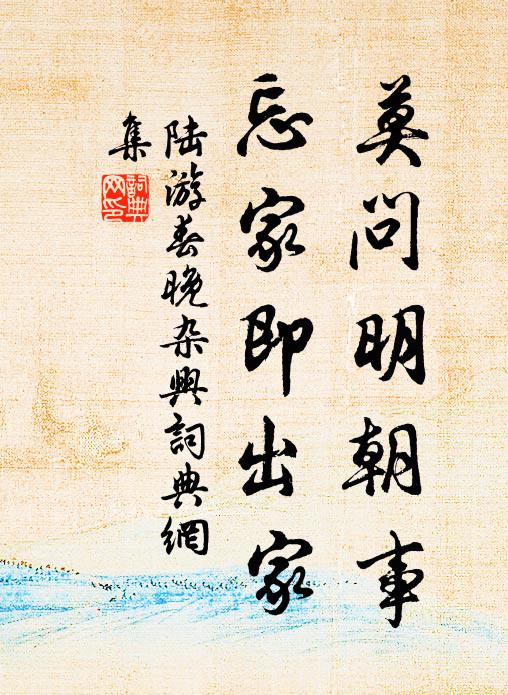 莫问明朝事
忘家即出家
陆游春晚杂興詞典網
集
詞典
网印